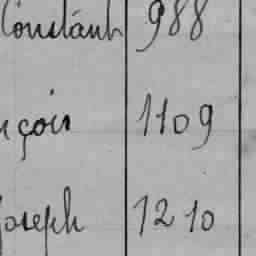 Constant 988
nçois 1109
Joseph 1210